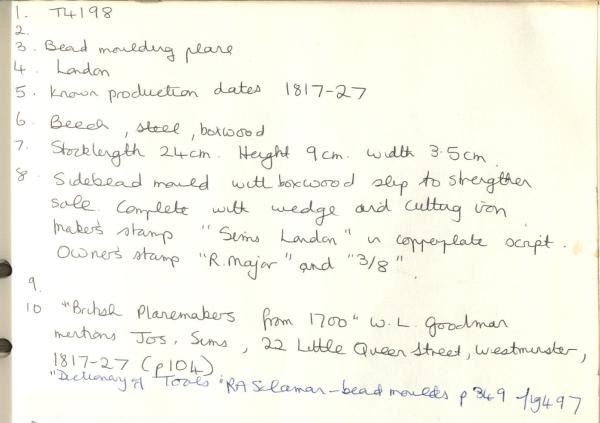 1. T4198
2.
3. Bead moulding plane
4. London
5. Known production dates 1817-27
6. Beech, steel, boxwood
7. Stocklength 24cm. Height 9cm. width 3.5cm.
8. Sidebead mould with boxwood slip to strengthen
sole. Complete with wedge and cutting iron.
Maker's stamp "Sims London" in copperplate script.
Owner's stamp "R. Major" and "3/8".
9.
10 "British Planemakers from 1700" W.L. Goodman
mentions Jos. Sims, 22 Little Queen Street, Westminster,
1817-27 (p104)
"Dictionary of Tools" RA Salaman - bead moulds p 349 fig 497